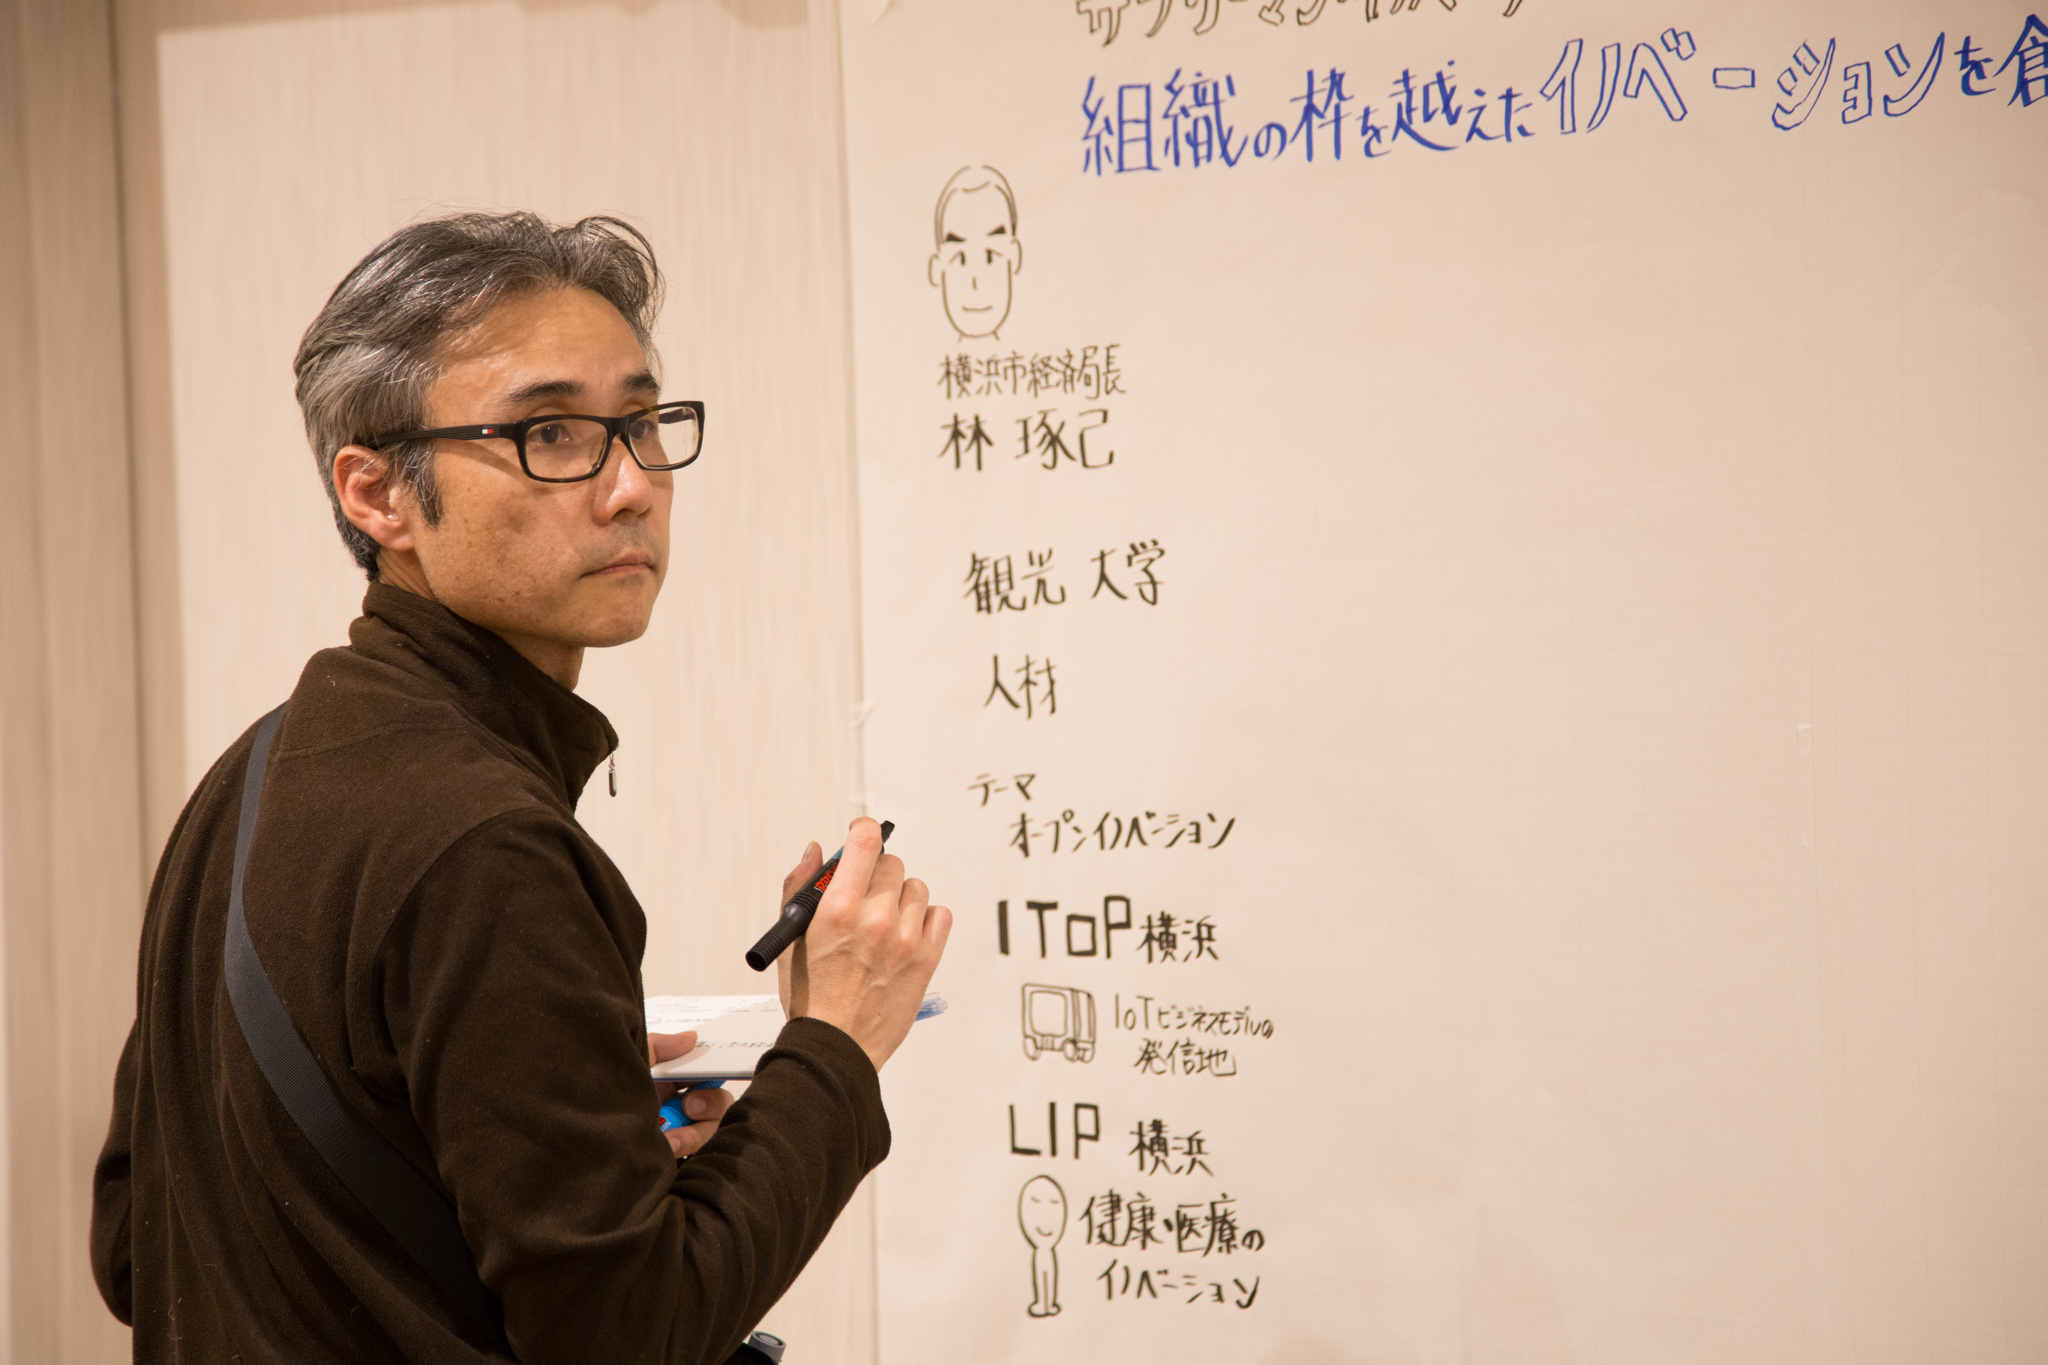 組織の枠を越えたイノベーションを創
横浜市経済局長
林 琢己
観光 大学
人材
テーマ
オープンイノベーション
ITOP横浜
IoTビジネスモデルの
発信地
LIP 横浜
健康・医療の
イノベーション